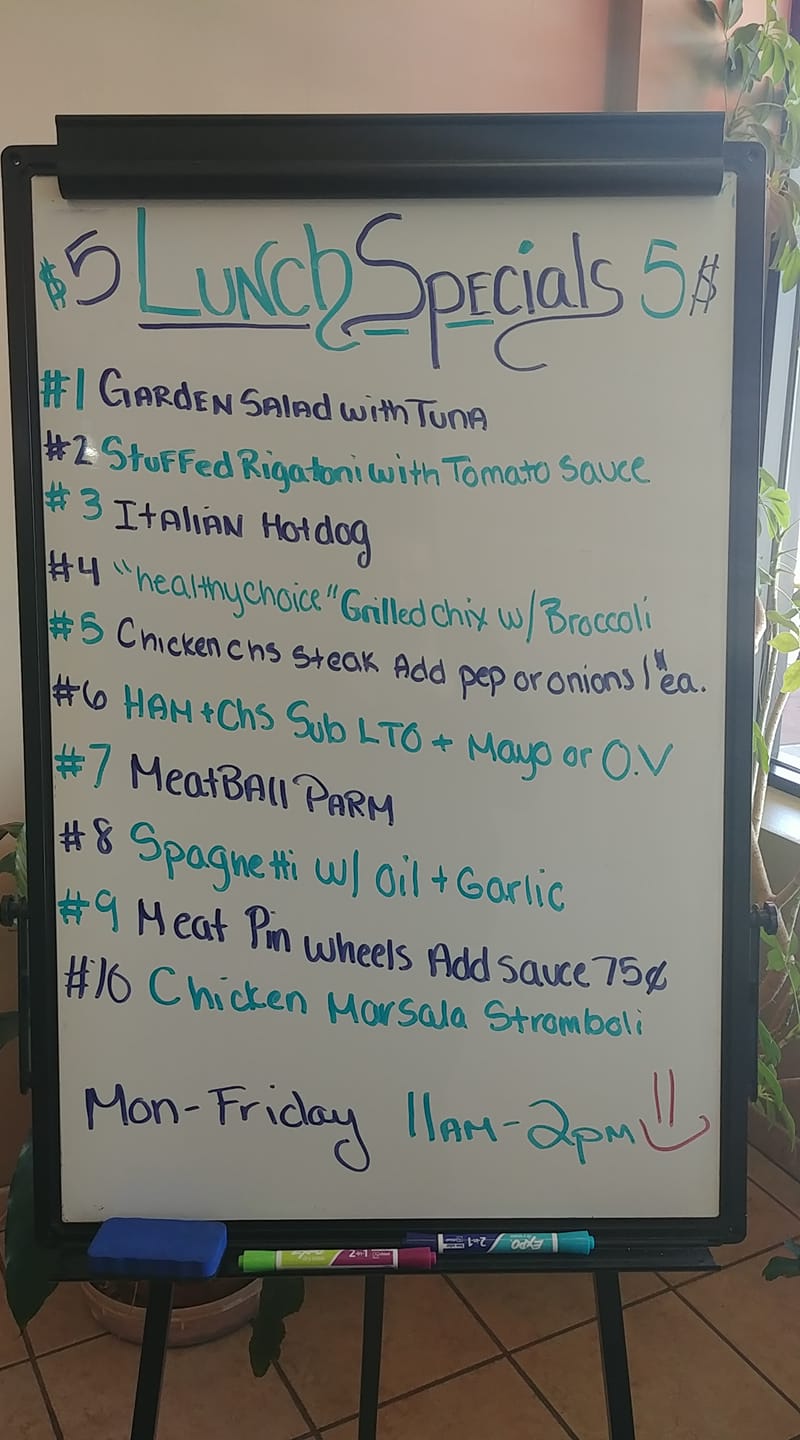 $5 Lunch Specials 5$
#1 Garden Salad with Tuna
#2 Stuffed Rigatoni with Tomato Sauce
#3 Italian Hotdog
#4 "healthychoice" Grilled chix w/ Broccoli
#5 Chicken chs steak Add pep or onions 1$ ea.
#6 HAM + Chs Sub LTO + Mayo or O.V
#7 MeatBall Parm
#8 Spaghetti w/ Oil + Garlic
#9 Meat Pin wheels Add sauce 75¢
#10 Chicken Marsala Stromboli
Mon-Friday 11AM-2PM
EXPO 2-in-1
2-in-1